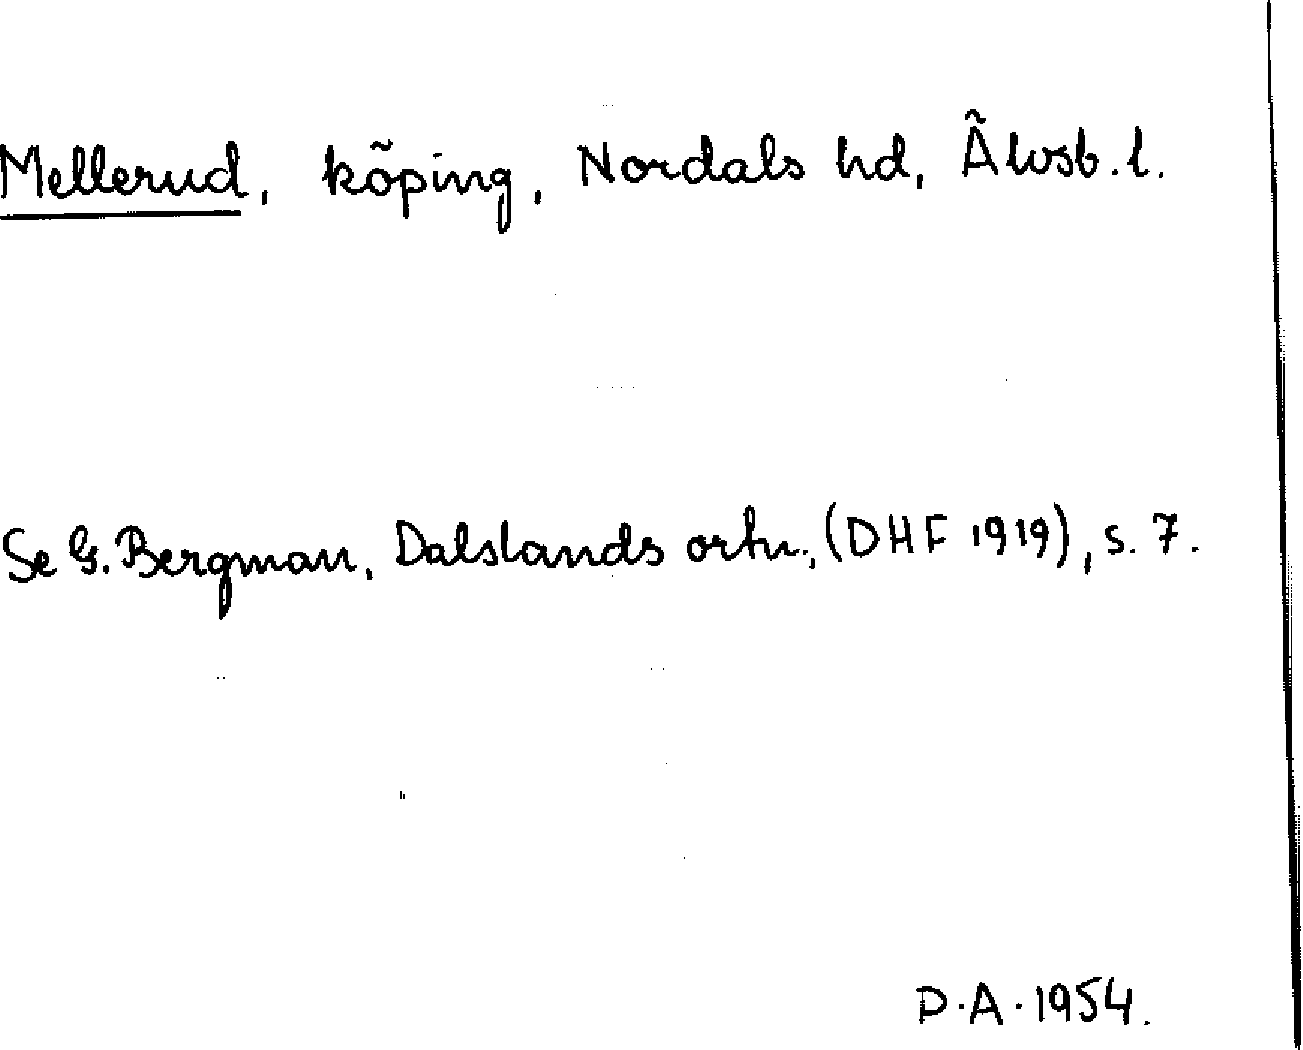 Mellerud, köping, Nordals hd, Älvsb. l.
Se G. Bergman, Dalslands ortn., (DHF 1919), s. 7.
P.A. 1954.